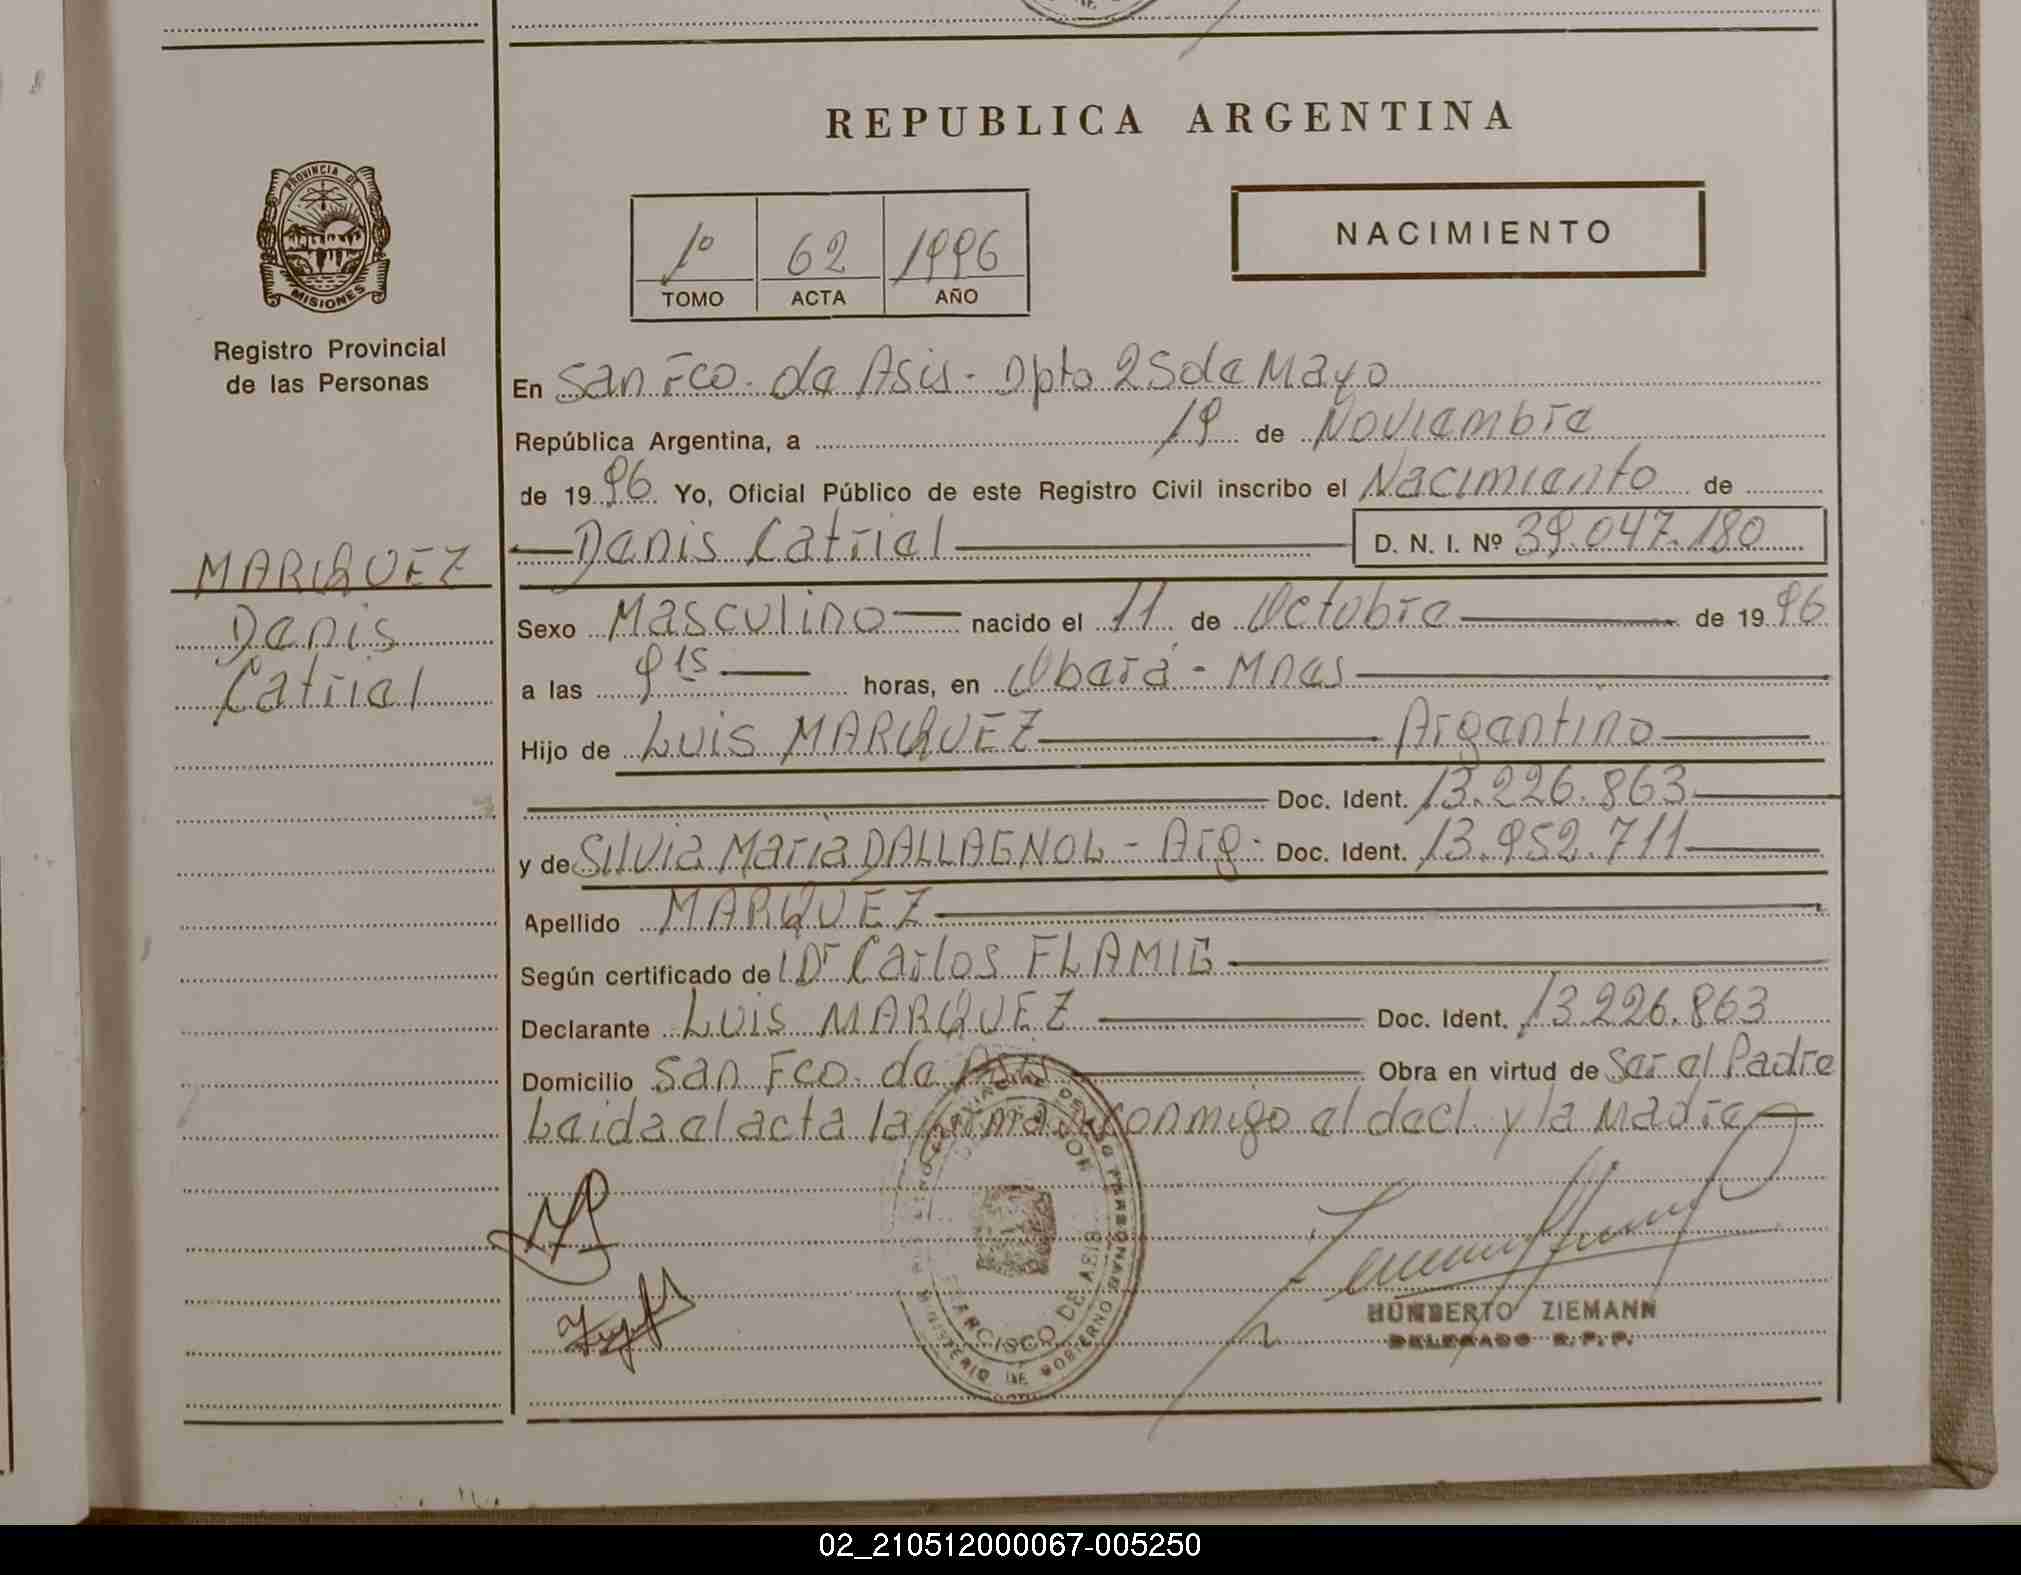 REPUBLICA ARGENTINA
PROVINCIA DE
MISIONES
Registro Provincial
de las Personas
1º 62 1996
TOMO ACTA AÑO
NACIMIENTO
En San Fco. de Asis - Dpto 25 de Mayo
República Argentina, a 19 de Noviembre
de 1996 Yo, Oficial Público de este Registro Civil inscribo el Nacimiento de
Denis Catriel D. N. I. Nº 39.047.180
MARQUEZ
Denis
Catriel
Sexo Masculino nacido el 11 de Octubre de 1996
a las 9 15 horas, en Oberá - Mnes
Hijo de Luis MARQUEZ Argentino
Doc. Ident. 13.226.863
y de Silvia Maria DALLAGNOL - Arg. Doc. Ident. 13.952.711
Apellido MARQUEZ
Según certificado del Dr Carlos FLAMIG
Declarante Luis MARQUEZ Doc. Ident. 13226.863
Domicilio San Fco. de Asis Obra en virtud de Ser el Padre
Leida el acta la firma conmigo el decl. y la Madre
FRANCISCO DE ASIS
MINISTERIO DE GOBIERNO
HUMBERTO ZIEMANN
DELEGADO R. P. P.
02_210512000067-005250